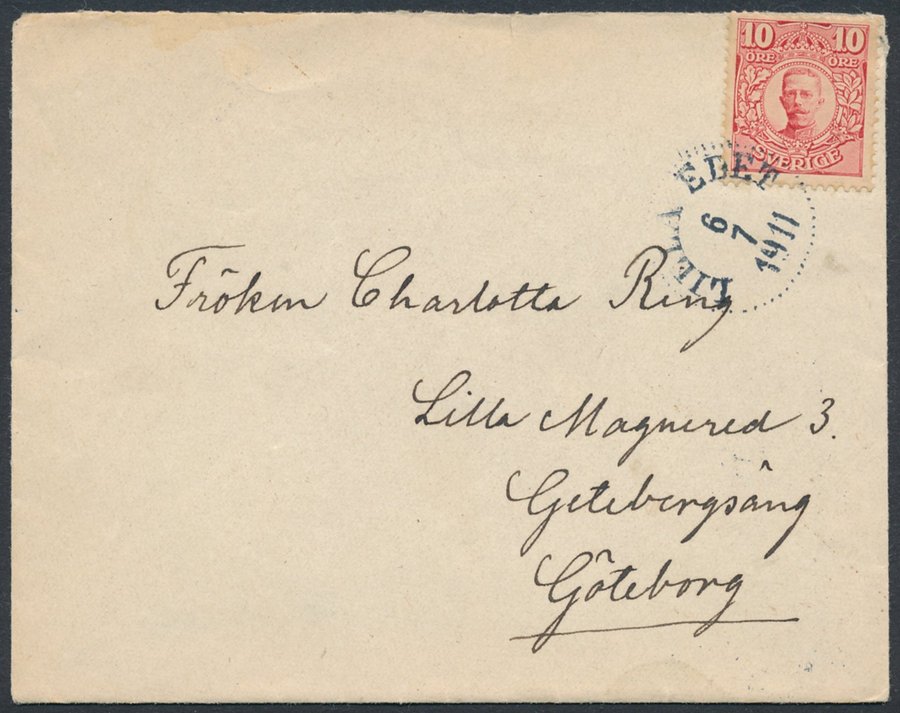 10 10
ÖRE ÖRE
SVERIGE
LILLA EDET
6
7
1911
Fröken Charlotta Ring
Lilla Magnered 3.
Getebergsäng
Göteborg